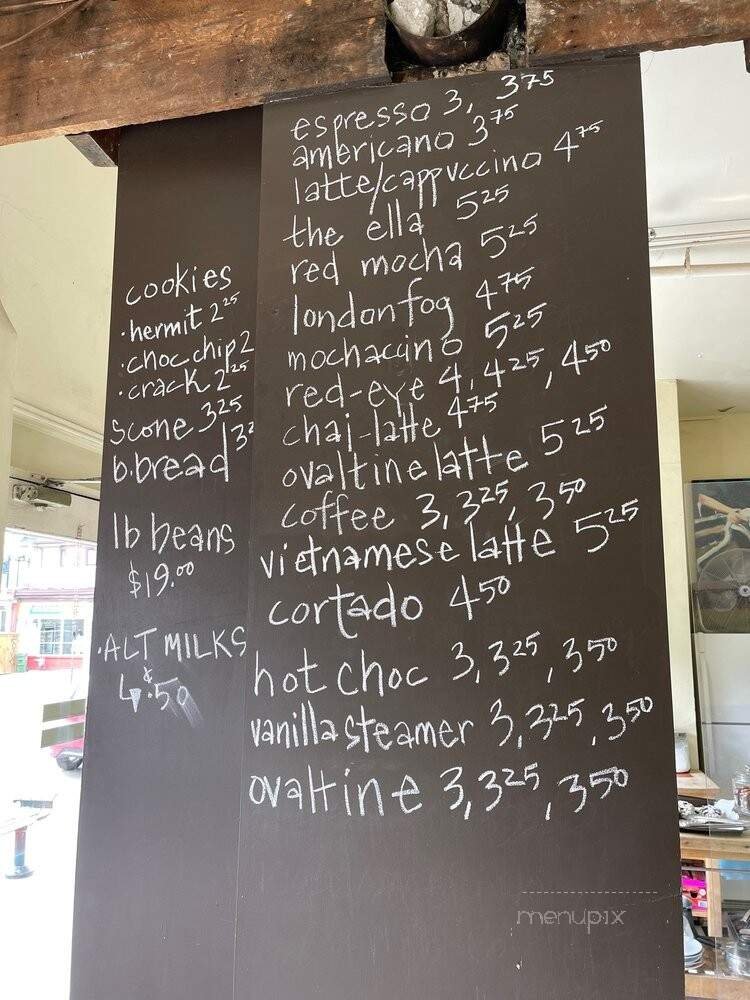 espresso 3, 3 75
americano 3 75
latte/cappuccino 4 75
the ella 5 25
red mocha 5 25
londonfog 4 75
mochaccino 5 25
red-eye 4, 4 25, 4 50
chai-latte 4 75
ovaltine latte 5 25
coffee 3, 3 25, 3 50
vietnamese latte 5 25
cortado 4 50
hot choc 3, 3 25, 3 50
vanilla steamer 3, 3 25, 3 50
ovaltine 3, 3 25, 3 50
cookies
·hermit 2 25
·choc chip 2
·crack 2 25
scone 3 25
b.bread 3
lb beans
$19.00
·ALT MILKS
.50
menupix